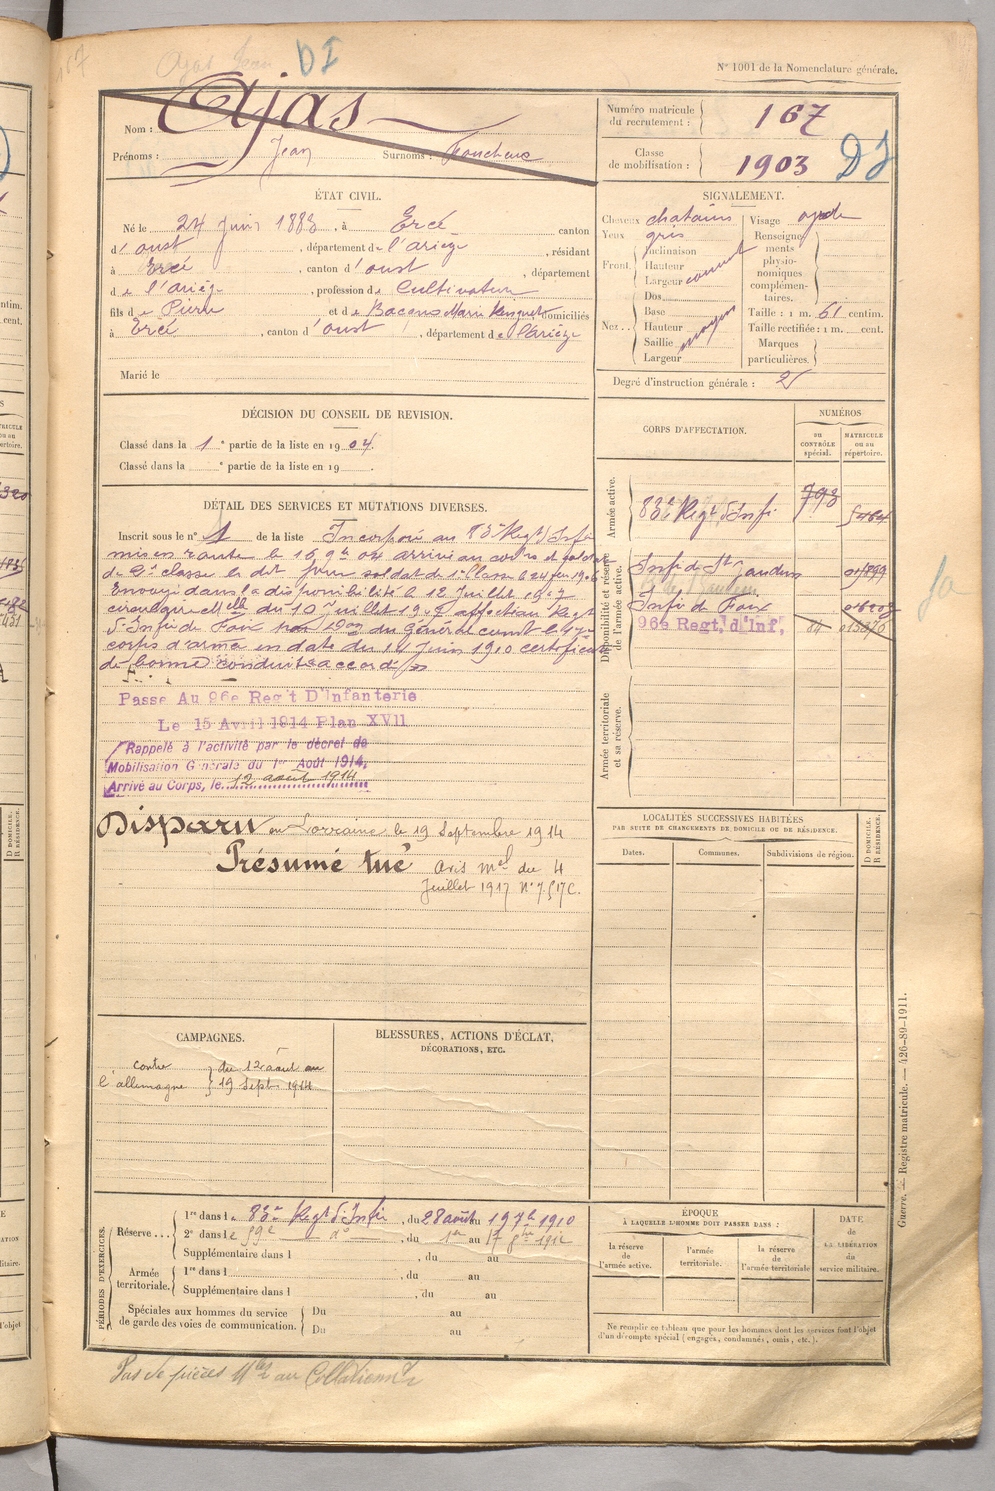 167
Ajas Jean
DI
N° 1001 de la Nomenclature générale.
Nom : Ajas
Prénoms : Jean Surnoms :
Numéro matricule du recrutement : 167
Classe de mobilisation : 1903
DJ
ÉTAT CIVIL.
Né le 24 Juin 1883, à Ercé canton
d'oust, département de l'ariège, résidant
à Ercé, canton d'oust, département
de l'ariège, profession de Cultivateur
fils de Pierre et de Bacens Marie domiciliés
à Ercé, canton d'oust, département de l'Ariège
Marié le
SIGNALEMENT.
Cheveux chatains
Yeux gris
Front. Inclinaison
Hauteur
Largeur
Nez. Dos
Base
Hauteur moyen
Saillie
Largeur
Visage
Renseignements physionomiques complémentaires.
Taille : 1 m. 61 centim.
Taille rectifiée : 1 m. cent.
Marques particulières.
Degré d'instruction générale : 2
DÉCISION DU CONSEIL DE REVISION.
Classé dans la 1e partie de la liste en 1904.
Classé dans la e partie de la liste en 19 .
DÉTAIL DES SERVICES ET MUTATIONS DIVERSES.
Inscrit sous le n° 1 de la liste Incorporé au 83e Regt d'Infie
mis en route le 16 9bre 04 arrivé au corps et soldat
de 2e classe le dit jour soldat de 1e Classe le 24
Envoyé dans la disponibilité le 12 Juillet 1907
circulaire Mlle du 10 Juillet 1907 affection Regt
d'Infie de Foix du Général comt le 17e
corps d'armée en date du 14 Juin 1910 certificat
de bonne conduite accordé
Passe Au 96e Reg't D'Infanterie
Le 15 Avril 1914 Plan XVII
Rappelé à l'activité par le décret de
Mobilisation Générale du 1er Août 1914,
Arrivé au Corps, le 12 août 1914
Disparu en Lorraine le 19 Septembre 1914
Présumé tué avis mel du 4
Juillet 1917 N°
CORPS D'AFFECTATION.
NUMÉROS
au CONTRÔLE spécial.
MATRICULE ou au répertoire.
Armée active.
83e Regt d'Infie 793
Disponibilité et réserve de l'armée active.
Infie de St Gaudens
Infie de Foix
96e Regt, d'Inf, 84
Armée territoriale et sa réserve.
LOCALITÉS SUCCESSIVES HABITÉES
PAR SUITE DE CHANGEMENTS DE DOMICILE OU DE RÉSIDENCE.
Dates.
Communes.
Subdivisions de région.
D DOMICILE.
R RÉSIDENCE.
CAMPAGNES.
contre l'allemagne } du 12 août au
19 Sept. 1914
BLESSURES, ACTIONS D'ÉCLAT,
DÉCORATIONS, ETC.
PÉRIODES D'EXERCICES.
Réserve... 1re dans le 83e Regt d'Infie, du 28 août au 1910
2e dans le 59e do, du 1er au 17 1912
Supplémentaire dans l , du au
Armée territoriale. 1re dans l , du au
Supplémentaire dans l , du au
Spéciales aux hommes du service de garde des voies de communication. Du au
Du au
ÉPOQUE
À LAQUELLE L'HOMME DOIT PASSER DANS :
la réserve de l'armée active.
l'armée territoriale.
la réserve de l'armée territoriale
DATE DE LA LIBÉRATION du service militaire.
Ne remplir ce tableau que pour les hommes dont les services font l'objet
d'un décompte spécial (engagés, condamnés, omis, etc.).
Guerre. — Registre matricule. — 426-89-1911.
Pas de pièces